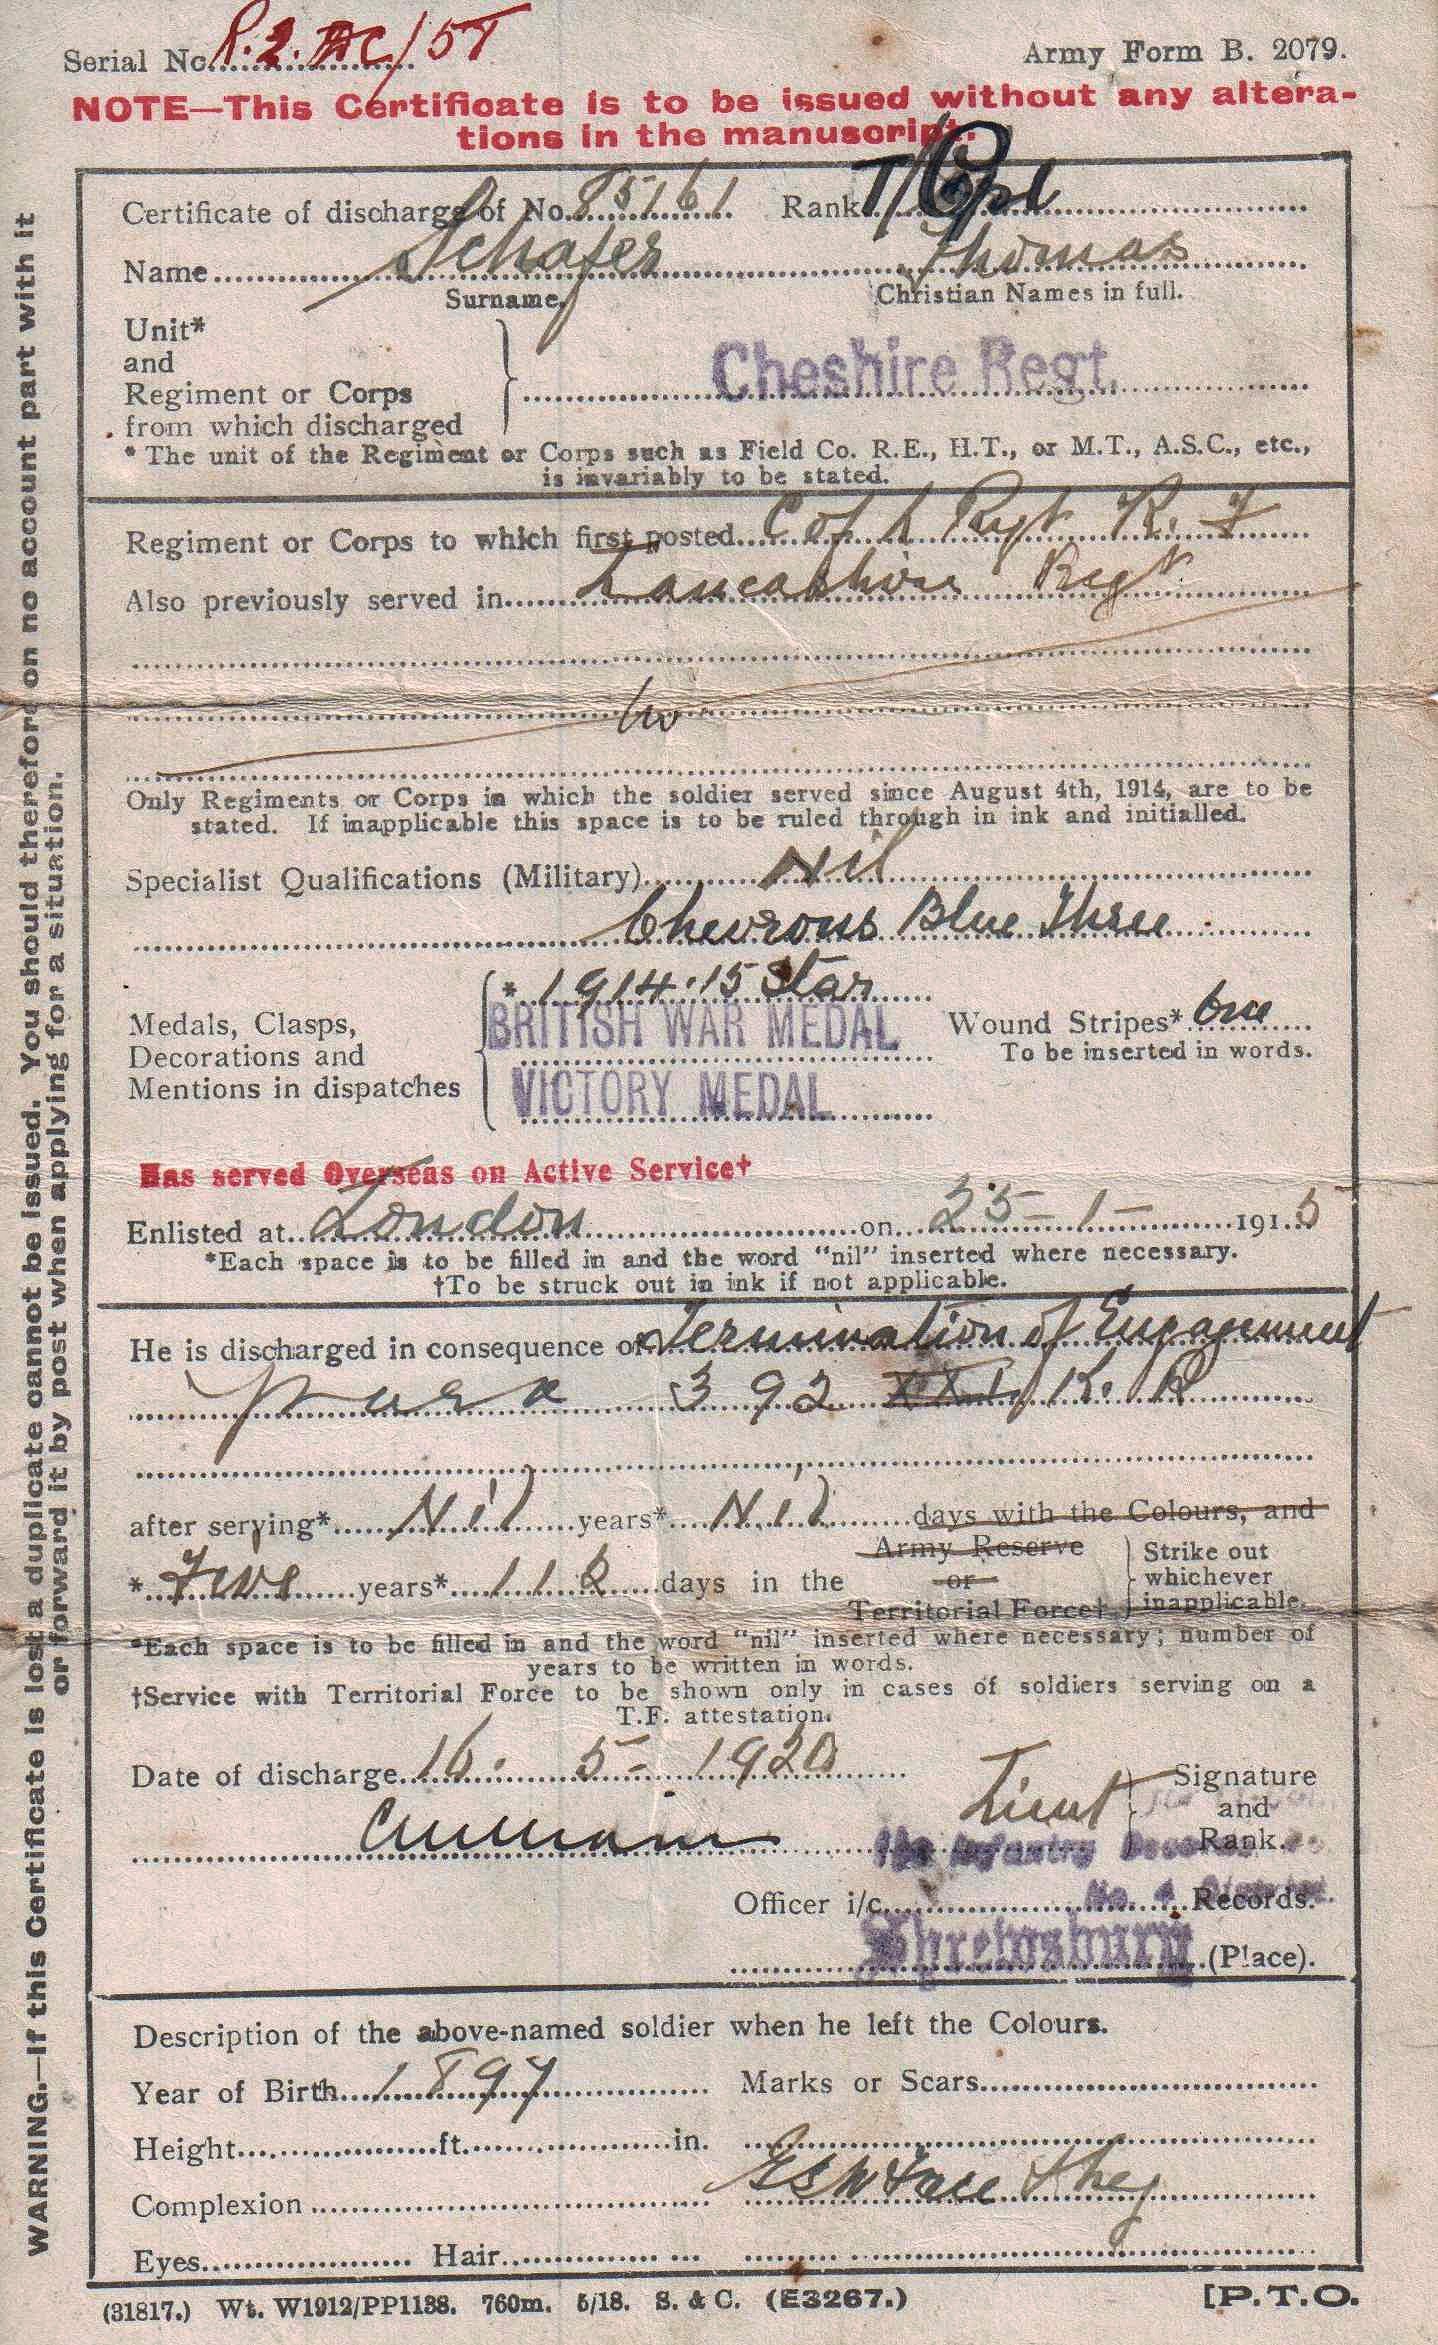 Serial No. R.2. AC/5T
Army Form B. 2079.
NOTE—This Certificate is to be issued without any altera-
tions in the manuscript.
Certificate of discharge of No. 85161 Rank T/Cpl
Name Schafer Thomas
Surname. Christian Names in full.
Unit*
and
Regiment or Corps
from which discharged
Cheshire Regt.
* The unit of the Regiment or Corps such as Field Co. R.E., H.T., or M.T., A.S.C., etc.,
is invariably to be stated.
Regiment or Corps to which first posted C of L Regt R. F
Also previously served in Lancashire Regt
Only Regiments or Corps in which the soldier served since August 4th, 1914, are to be
stated. If inapplicable this space is to be ruled through in ink and initialled.
Specialist Qualifications (Military) Nil
Chevrons Blue Three
Medals, Clasps,
Decorations and
Mentions in dispatches
* 1914·15 Star
BRITISH WAR MEDAL
VICTORY MEDAL
Wound Stripes* One
To be inserted in words.
Has served Overseas on Active Service†
Enlisted at London on 25-1- 1915
*Each space is to be filled in and the word "nil" inserted where necessary.
†To be struck out in ink if not applicable.
He is discharged in consequence of Termination of Engagement
para 392 XXI K. R
after serving* Nil years* Nil days with the Colours, and
* Five years* 112 days in the Army Reserve
or
Territorial Force†
Strike out
whichever
inapplicable.
*Each space is to be filled in and the word "nil" inserted where necessary; number of
years to be written in words.
†Service with Territorial Force to be shown only in cases of soldiers serving on a
T.F. attestation.
Date of discharge 16. 5- 1920
Lieut
Signature
and
Rank.
Infantry
Officer i/c No. Records.
Shrewsbury (Place).
Description of the above-named soldier when he left the Colours.
Year of Birth 1897 Marks or Scars
Height ft. in.
Complexion
Eyes Hair
(31817.) Wt. W1912/PP1138. 760m. 5/18. S. & C. (E3267.)
[P.T.O.
WARNING.—If this Certificate is lost a duplicate cannot be issued. You should therefore on no account part with it
or forward it by post when applying for a situation.